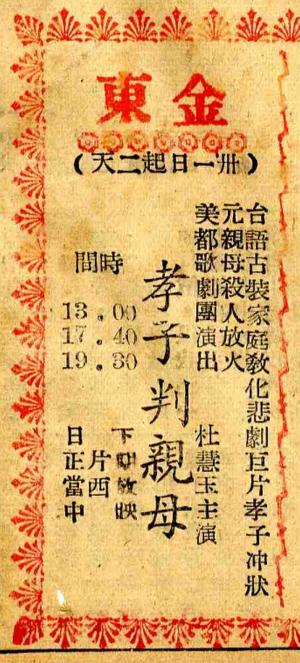 金東
(卅一日起二天)
台語古裝家庭敎化悲劇巨片孝子冲狀
元親母殺人放火
美都歌劇團演出 杜慧玉主演
孝子判親母
時間
13.00
17.40
19.30
下期放映
片西
日正當中